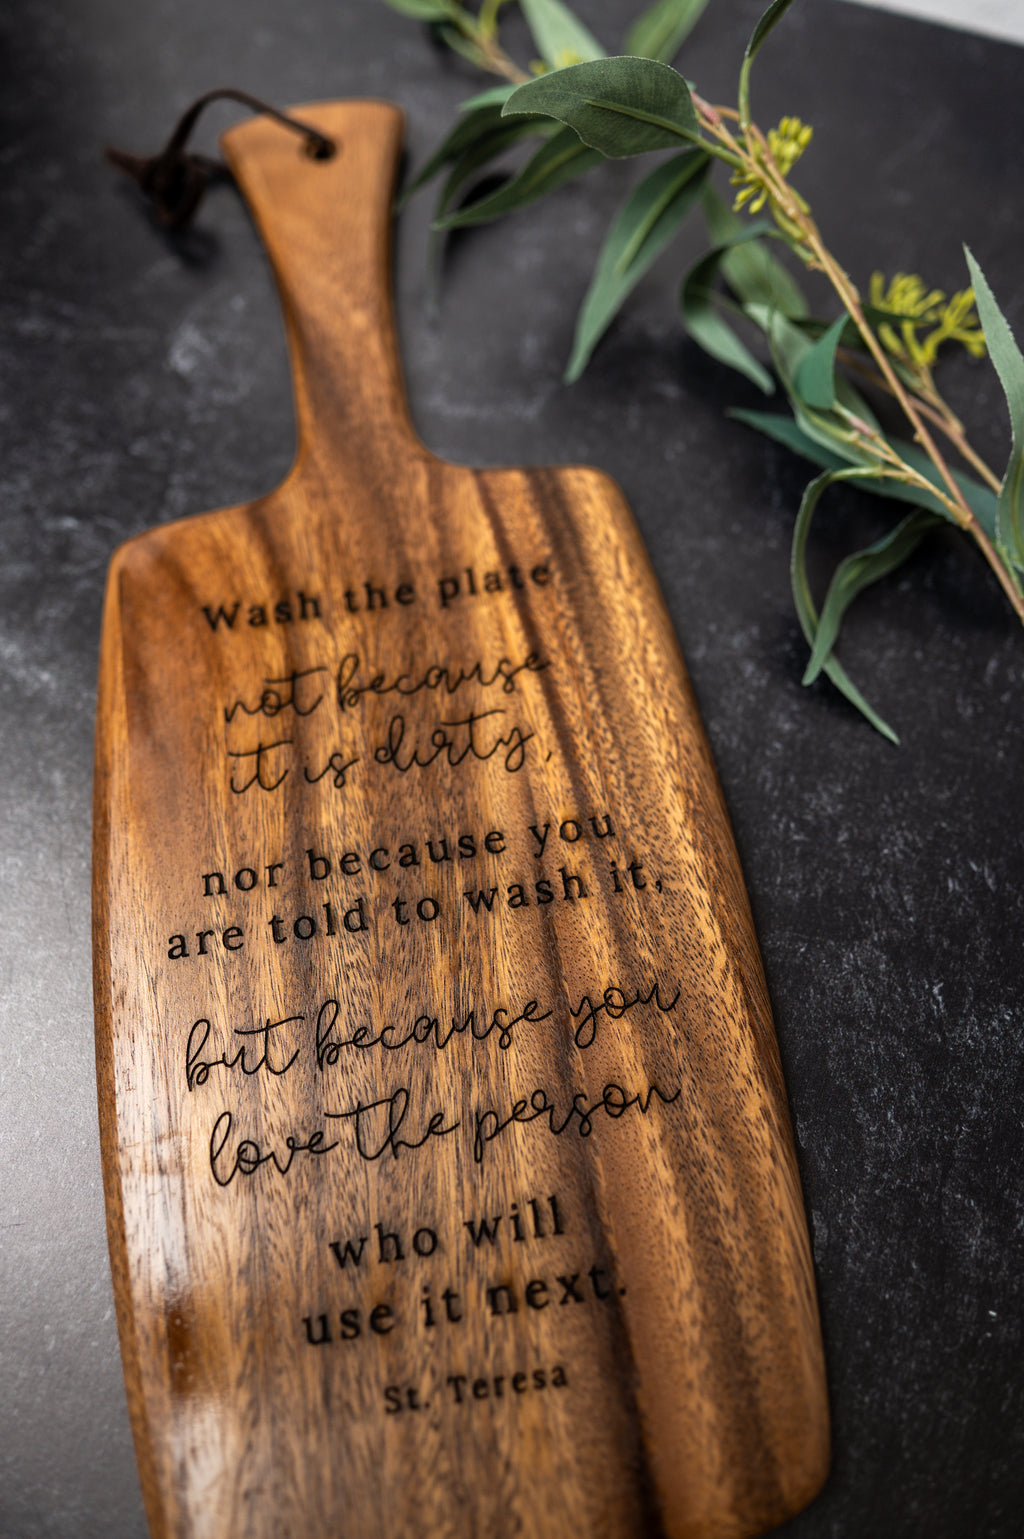 Wash the plate
not because
it is dirty,
nor because you
are told to wash it,
but because you
love the person
who will
use it next.
St. Teresa